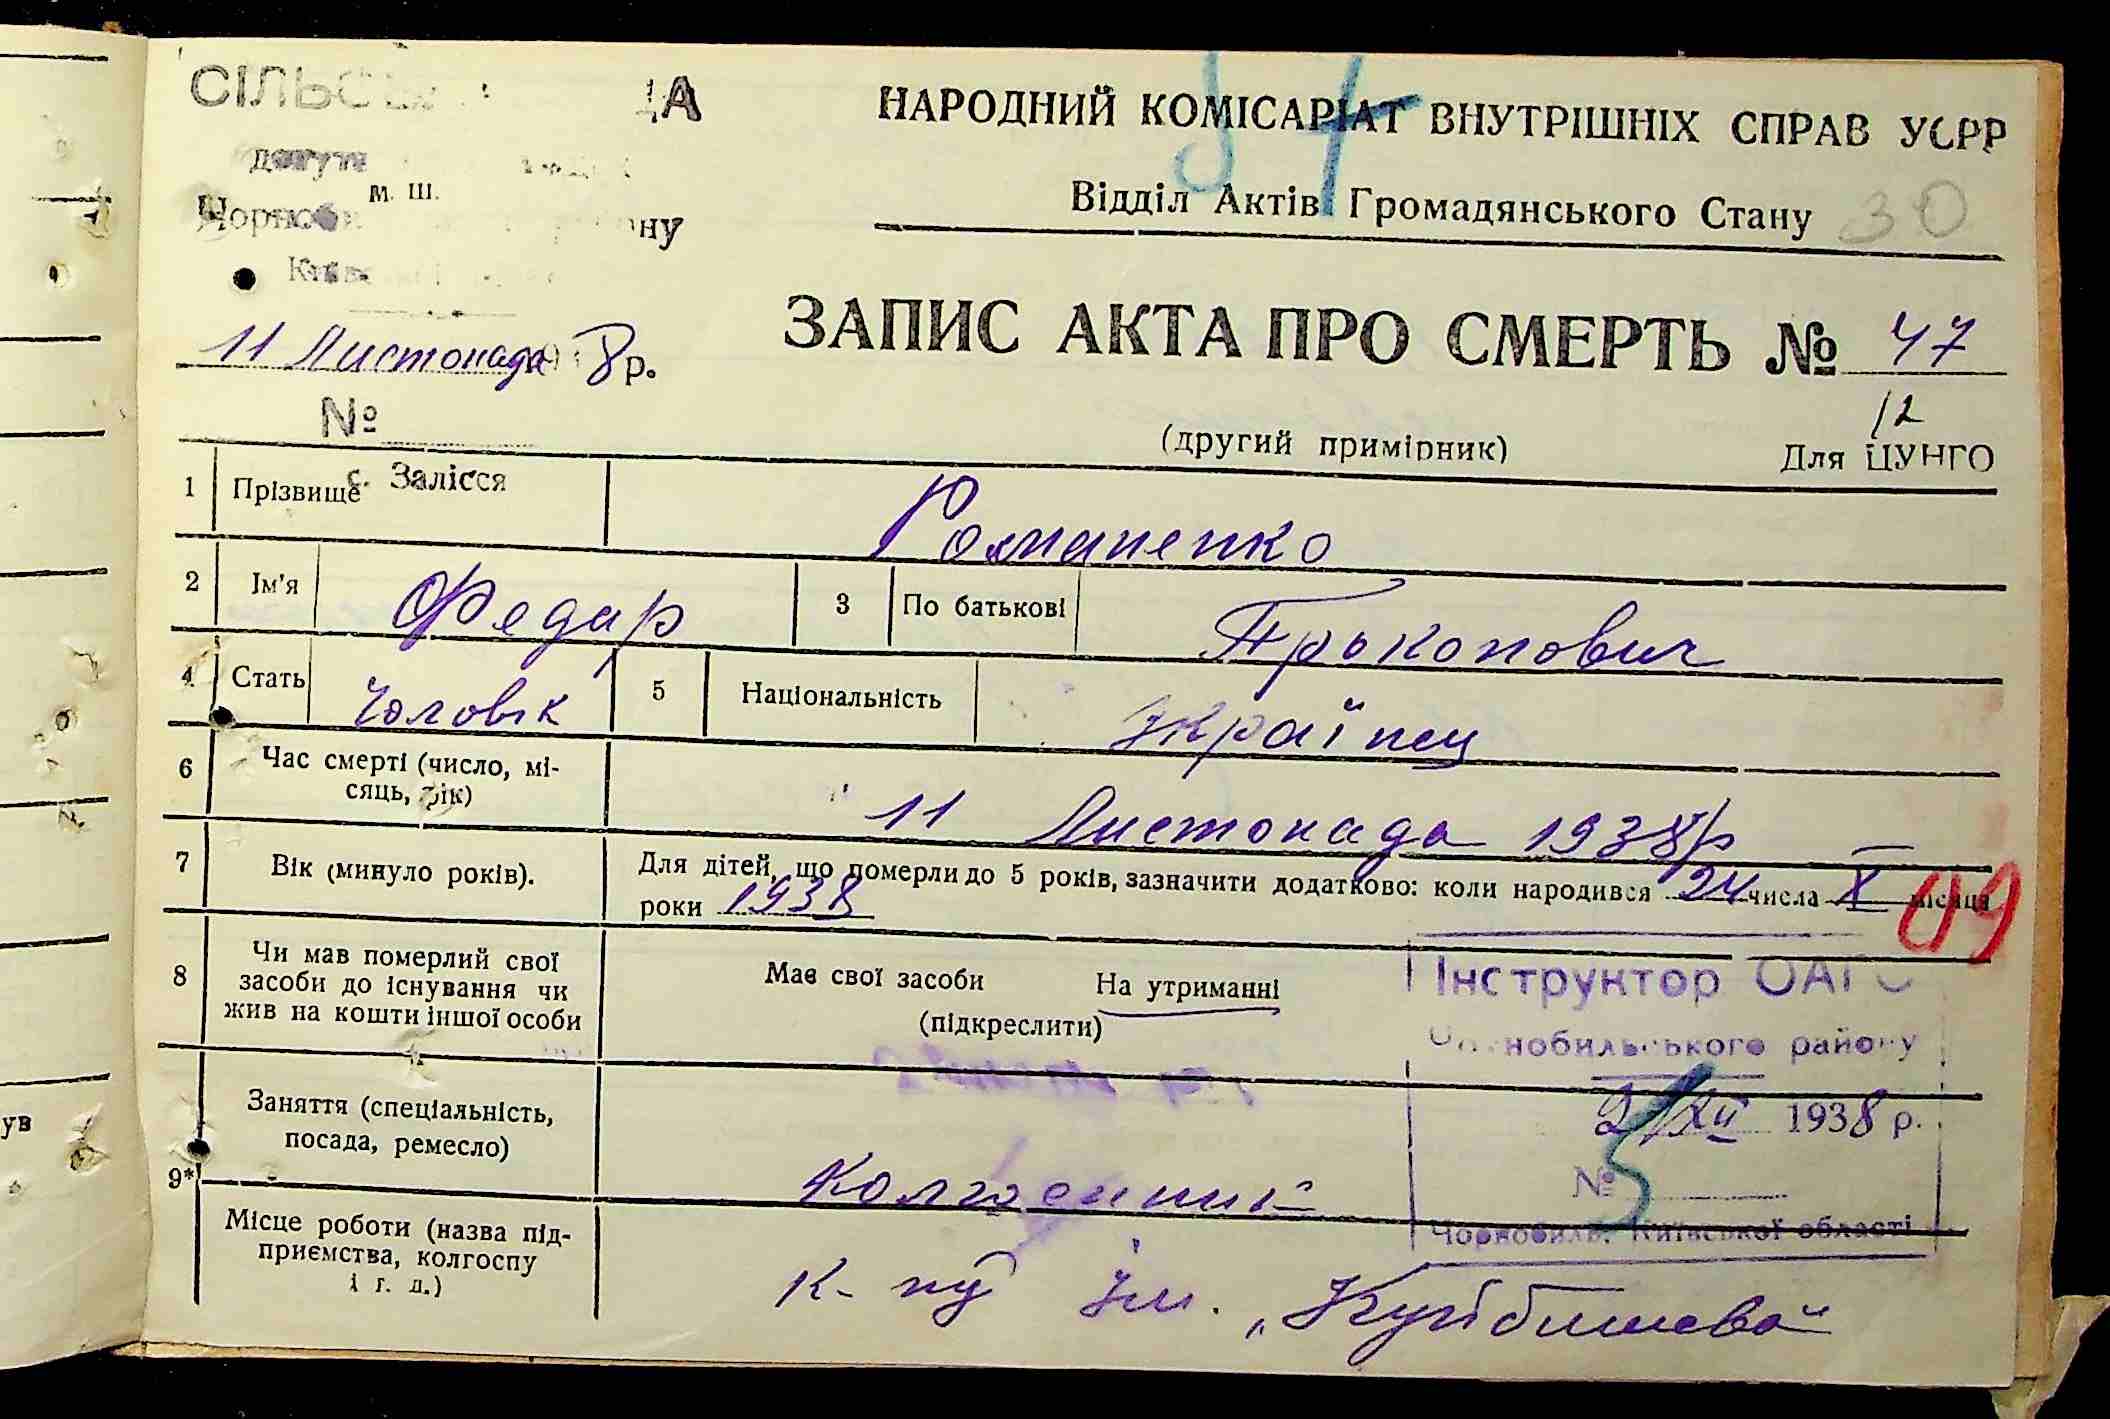 СІЛЬС
НАРОДНИЙ КОМІСАРІАТ ВНУТРІШНІХ СПРАВ УСРР
57
м. Ш.
Відділ Актів Громадянського Стану 30
ЗАПИС АКТА ПРО СМЕРТЬ № 47
11 Листопада 1938 р.
12
№
(другий примірник) Для ЦУНГО
с. Залісся
1 Прізвище Романенко
2 Ім'я Федар 3 По батькові Прокопович
4 Стать Чоловік 5 Національність Українец
6 Час смерті (число, мі-
сяць, рік)
11 Листопада 1938 р
7 Вік (минуло років). Для дітей, що померли до 5 років, зазначити додатково: коли народився 24 числа X місяця
роки 1938
8 Чи мав померлий свої
засоби до існування чи
жив на кошти іншої особи
Має свої засоби На утриманні
(підкреслити)
Інструктор ОАГС
Чорнобильського району
2/XII 1938 р.
№
Чорнобиль, Київської області
9* Заняття (спеціальність,
посада, ремесло)
Колгоспник
Місце роботи (назва під-
приємства, колгоспу
і т. д.)
К-пу Ім. „Куйбишева"
ув